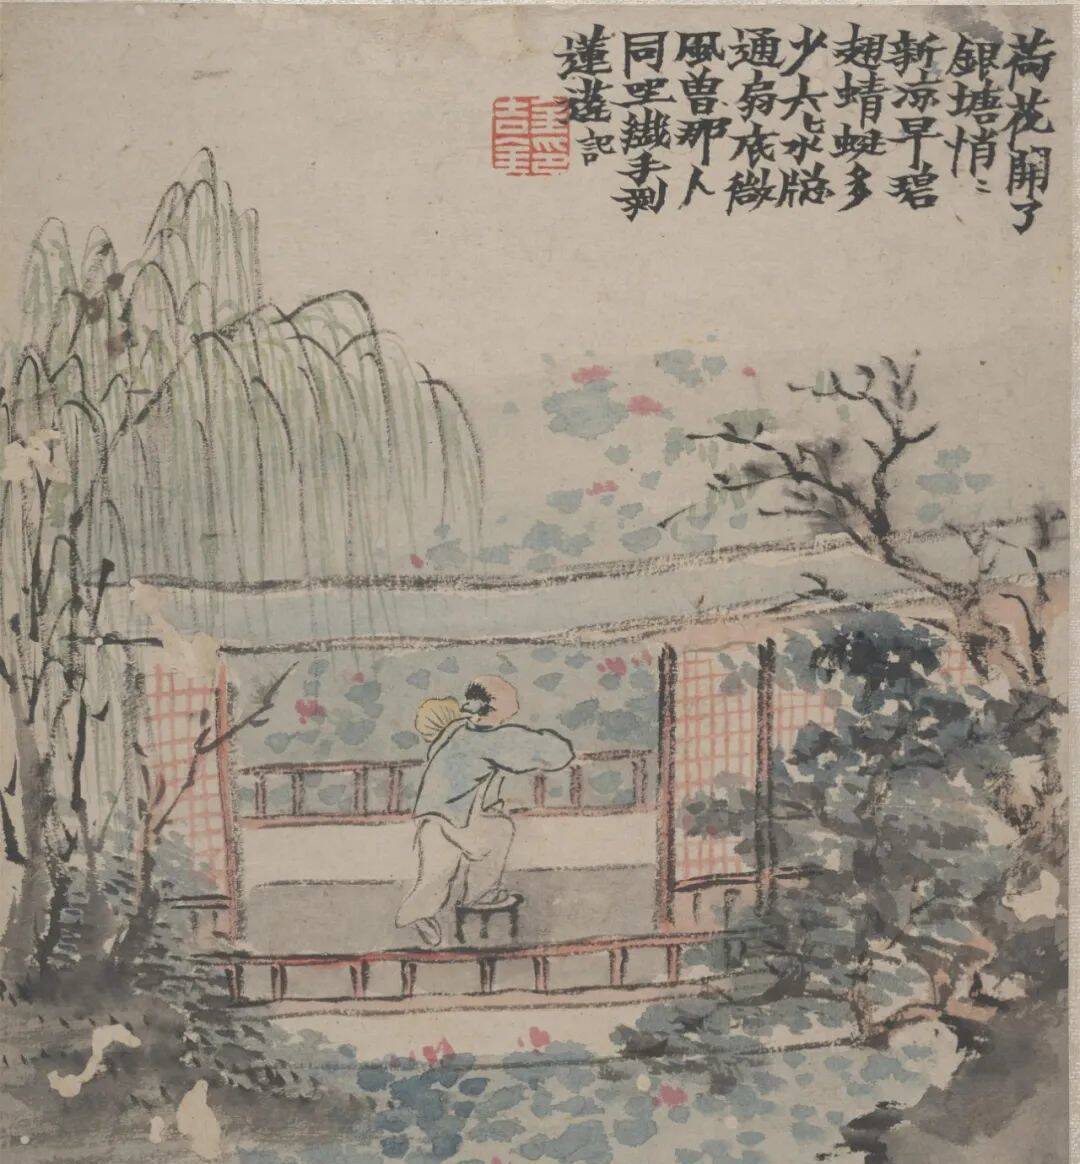 荷花開了
銀塘悄〻
新涼早碧
翅蜻蜓多
少六〻水窻
通扇底微
風曽那人
同坐纖手剥
蓮蓬記
金吉金印